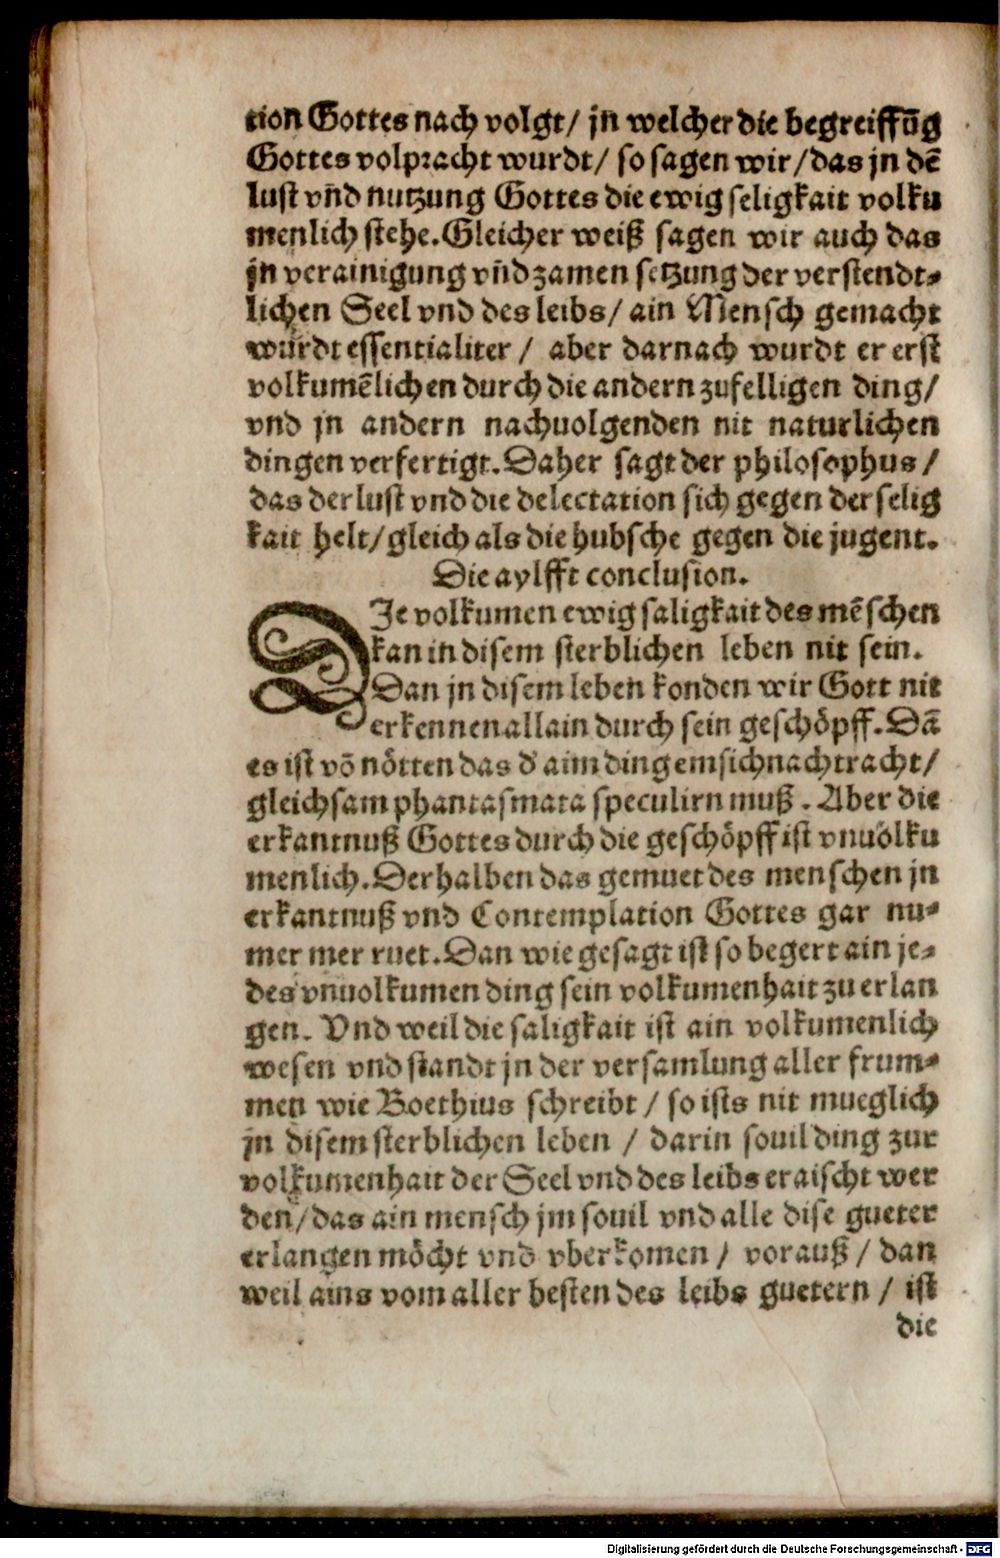 tion Gottes nach volgt/ jn welcher die begreiffũg
Gottes volpracht wurdt/ so sagen wir/das jn dẽ
lust vñd nutzung Gottes die ewig seligkait volku
menlich stehe.Gleicher weiß sagen wir auch das
jn verainigung vñd zamen setzung der verstendt-
lichen Seel vnd des leibs/ ain Mensch gemacht
wurdt essentialiter / aber darnach wurdt er erst
volkumẽlichen durch die andern zufelligen ding/
vnd jn andern nachuolgenden nit naturlichen
dingen verfertigt.Daher sagt der philosophus /
das der lust vnd die delectation sich gegen der selig
kait helt/gleich als die hubsche gegen die jugent.
Die aylfft conclusion.
DIe volkumen ewig saligkait des mẽschen
kan in disem sterblichen leben nit sein.
Dan jn disem leben konden wir Gott nit
erkennen allain durch sein geschöpff.Dã
es ist võ nötten das d' aim ding emsich nachtracht/
gleichsam phantasmata speculirn muß. Aber die
erkantnuß Gottes durch die geschöpff ist vnuolku
menlich.Derhalben das gemuet des menschen jn
erkantnuß vnd Contemplation Gottes gar nu-
mer mer ruet.Dan wie gesagt ist so begert ain je-
des vnuolkumen ding sein volkumenhait zu erlan
gen. Vnd weil die saligkait ist ain volkumenlich
wesen vnd standt jn der versamlung aller frum-
men wie Boethius schreibt / so ists nit mueglich
jn disem sterblichen leben / darin souil ding zur
volkumenhait der Seel vnd des leibs eraischt wer
den/das ain mensch jm souil vnd alle dise gueter
erlangen möcht vnd vberkomen / vorauß / dan
weil ains vom aller besten des leibs guetern / ist
die
Digitalisierung gefördert durch die Deutsche Forschungsgemeinschaft - DFG